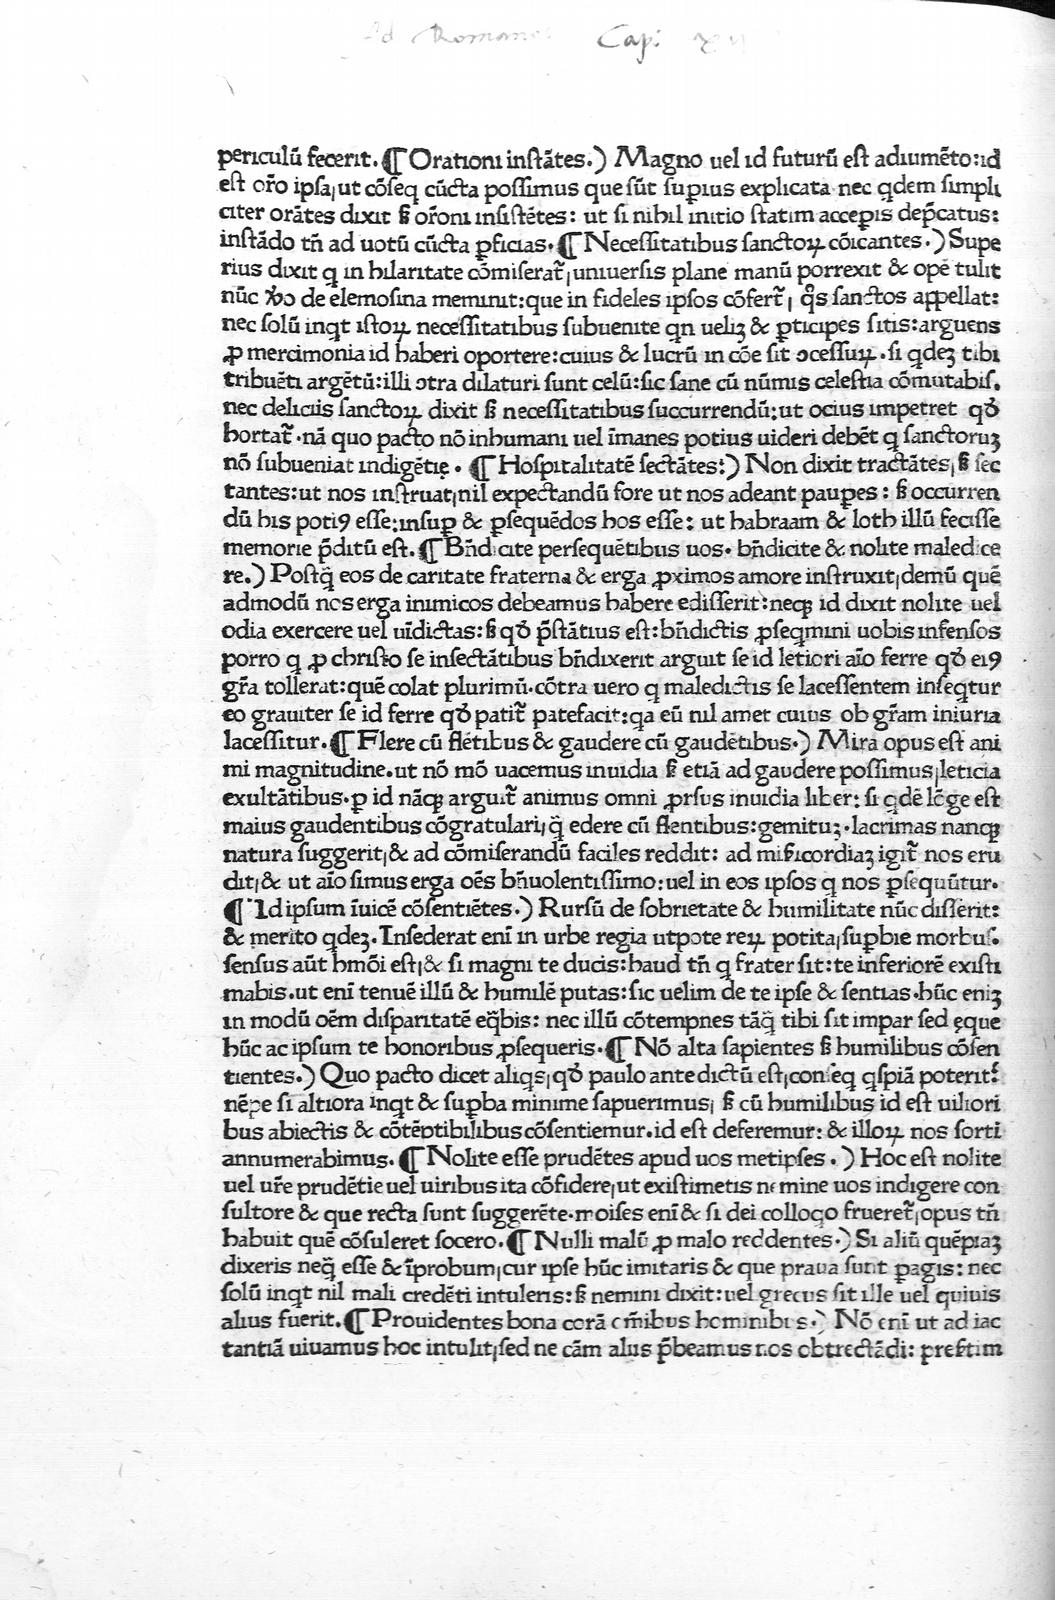 Ad Romanos Capi: XII
periculū fecerit. ¶ Orationi instātes.) Magno uel id futurū est adiumēto: id
est or̄o ipsa, ut cōseq̄ cūcta possimus que sūt supius explicata nec q̄dem simpli
citer orātes dixit ß or̄oni insistētes: ut si nihil initio statim accepis dep̄catus:
instādo tn̄ ad uotū cūcta ꝓficias. ¶ Necessitatibus sanctoꝝ cōicantes.) Supe
rius dixit q in hilaritate cōmiserat᷑, uniuersis plane manū porrexit & opē tulit
nūc ꝟo de elemosina meminit: que in fideles ipsos cōfert᷑, q̊s sanctos appellat:
nec solū inqt istoꝝ necessitatibus subuenite qn ueliꝫ & ꝑticipes sitis: arguens
ꝓ mercimonia id haberi oportere: cuius & lucrū in cōe sit ↄcessuꝝ. si qdeꝫ tibi
tribuēti argētū: illi ↄtra dilaturi sunt celū: sic sane cū nūmis celestia cōmutabis.
nec deliciis sanctoꝝ dixit ß necessitatibus succurrendū: ut ocius impetret qđ
hortat᷑. nā quo pacto nō inhumani uel īmanes potius uideri debēt q sanctoruꝫ
nō subueniat indigētię. ¶ Hospitalitatē sectātes:) Non dixit tractātes, ß sec
tantes: ut nos instruat, nil expectandū fore ut nos adeant pauꝑes: ß occurren
dū his potiꝰ esse: insuꝑ & ꝑsequēdos hos esse: ut habraam & loth illū fecisse
memorie p̄ditū est. ¶ Bn̄dicite persequētibus uos. bn̄dicite & nolite maledice
re.) Postq̄ eos de caritate fraterna & erga ꝓximos amore instruxit, demū quē
admodū nos erga inimicos debeamus habere edisserit: neqꝫ id dixit nolite uel
odia exercere uel uīdictas: ß qđ p̄stātius est: bn̄dictis ꝓseqmini uobis infensos
porro q ꝓ christo se insectātibus bn̄dixerit arguit se id letiori aīo ferre qđ eiꝰ
gr̄a tollerat: quē colat plurimū. cōtra uero q maledictis se lacessentem inseqtur
eo grauiter se id ferre qđ patit᷑ patefacit: qa eū nil amet cuius ob gr̄am iniuria
lacessitur. ¶ Flere cū flētibus & gaudere cū gaudētibus.) Mira opus est ani
mi magnitudine. ut nō mō uacemus inuidia ß etiā ad gaudere possimus, leticia
exultātibus. ꝑ id nāqꝫ arguit᷑ animus omni ꝓrsus inuidia liber: si qdē lōge est
maius gaudentibus cōgratulari, q̄ edere cū flentibus: gemituꝫ. lacrimas nanqꝫ
natura suggerit, & ad cōmiserandū faciles reddit: ad mißicordiaꝫ igit᷑ nos eru
dit, & ut aīo simus erga oēs bn̄uolentissimo: uel in eos ipsos q nos ꝑsequūtur.
¶ Id ipsum īuicē cōsentiētes.) Rursū de sobrietate & humilitate nūc disserit:
& merito qdeꝫ. Insederat enī in urbe regia utpote reꝝ potita, suꝑbie morbus.
sensus aūt hmōi est, & si magni te ducis: haud tn̄ q frater sit: te inferiorē existi
mabis. ut enī tenuē illū & humilē putas: sic uelim de te ipse & sentias. hūc eniꝫ
in modū oēm disparitatē eq̄bis: nec illū cōtempnes tāq̄ tibi sit impar sed ęque
hūc ac ipsum te honoribus ꝓsequeris. ¶ Nō alta sapientes ß humilibus cōsen
tientes.) Quo pacto dicet aliqs, qđ paulo ante dictū est, conseq̄ qspiā poterit:
nēpe si altiora inqt & suꝑba minime sapuerimus, ß cū humilibus id est uiliori
bus abiectis & cōtēptibilibus cōsentiemur. id est deferemur: & illoꝝ nos sorti
annumerabimus. ¶ Nolite esse prudētes apud uos metipses.) Hoc est nolite
uel ur̄e prudētie uel uiribus ita cōfidere, ut existimetis nemine uos indigere con
sultore & que recta sunt suggerēte. moises enī & si dei colloqo frueret᷑, opus tn̄
habuit quē cōsuleret socero. ¶ Nulli malū ꝓ malo reddentes.) Si aliū quēpiaꝫ
dixeris neq̄ esse & īprobum, cur ipse hūc imitaris & que praua sunt ꝑagis: nec
solū inqt nil mali credēti intuleris: ß nemini dixit: uel grecus sit ille uel quiuis
alius fuerit. ¶ Prouidentes bona corā om̄ibus hominibus.) Nō enī ut ad iac
tantiā uiuamus hoc intulit, sed ne cām aliis p̄beamus nos obtrectādi: preßtim